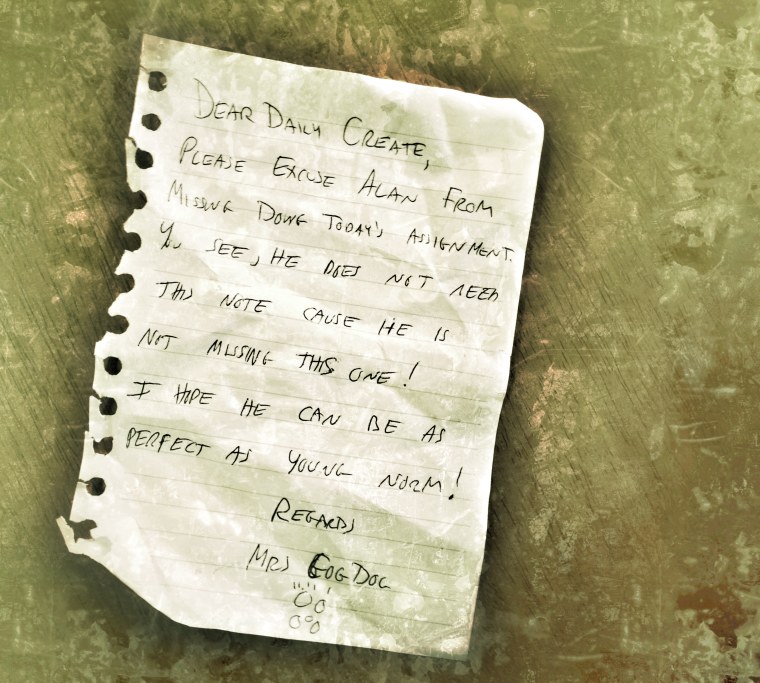 DEAR DAILY CREATE,
PLEASE EXCUSE ALAN FROM
MISSING DOING TODAY'S ASSIGNMENT.
YOU SEE, HE DOES NOT NEED
THIS NOTE CAUSE HE IS
NOT MISSING THIS ONE!
I HOPE HE CAN BE AS
PERFECT AS YOUNG NORM!
REGARDS
MRS COGDOG